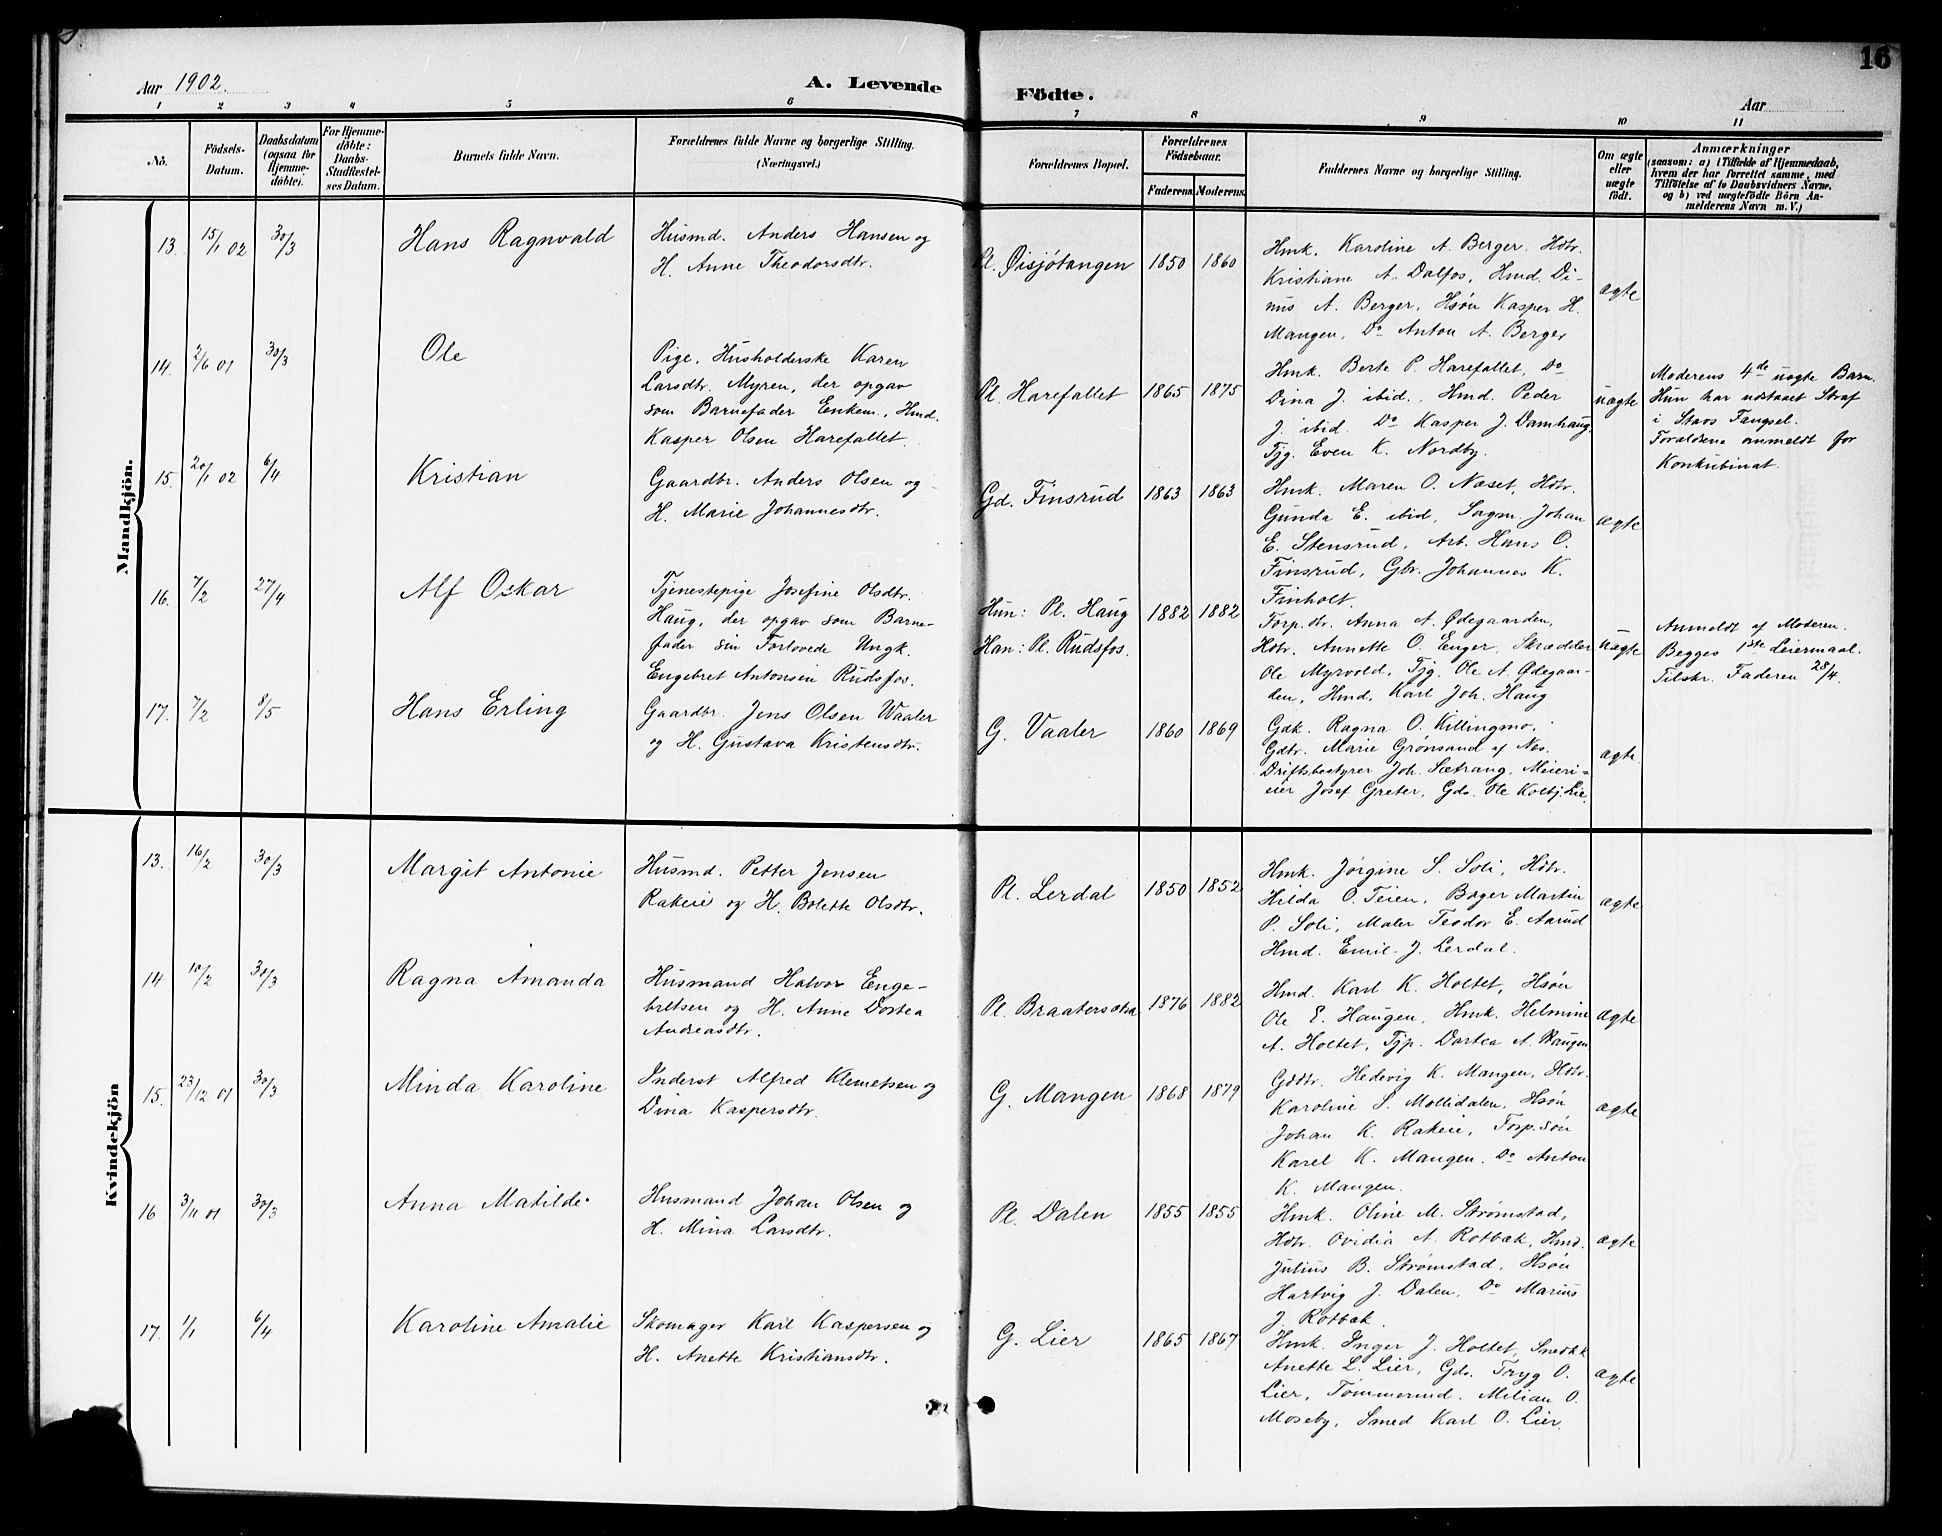 Aar 1902.
A. Levende
Födte.
Aar
16
1 2 3 4 5 6 7 8 9 10 11
No.
Födsels-
Datum.
Daabsdatum
(ogsaa for
Hjemme-
döbte).
For Hjemme-
döbte:
Daabs-
Stadfæstel-
ses Datum.
Barnets fulde Navn.
Forældrenes fulde Navne og borgerlige Stilling.
(Næringsvei.)
Forældrenes Bopæl.
Forældrenes
Födselsaar.
Faderens. Moderens.
Faddernes Navne og borgerlige Stilling.
Om ægte
eller
uægte
födt.
Anmærkninger
(saasom: a) i Tilfælde af Hjemmedaab,
hvem der har forrettet samme, med
Tilföielse af to Daabsvidners Navne,
og b) ved uægtefödte Börn An-
melderens Navn m. V.)
Mandkjön.
13. 15/1 02 30/3
Hans Ragnvald
Husmd. Anders Hansen og
H. Anne Theodorsdtr.
Pl. Øisjötangen 1850 1860
Hmk. Karoline A. Berger, Hdtr.
Kristiane A. Dalfos, Hmd. Di-
nus A. Berger, Hsøn Kasper H.
Mangen, Do Anton A. Berger
ægte
14. 2/6 01 30/3
Ole
Pige, Husholderske Karen
Larsdtr. Myren, der opgav
som Barnefader Enkem., Hmd.
Kasper Olsen Harefallet.
Pl. Harefallet 1865 1875
Hmk. Berte P. Harefallet, Do
Dina J. ibid., Hmd. Peder
J. ibid. Do Kasper J. Damhaug,
Tjg. Even K. Nordby.
uægte
Moderens 4de uægte Barn.
Hun har udstaaet Straf
i Slavs Fængsel.
Forældrene anmeldt for
Konkubinat.
15. 20/1 02 6/4
Kristian
Gaardbr. Anders Olsen og
H. Marie Johannesdtr.
Gd. Finsrud 1863 1863
Hmk. Maren O. Næset, Hdtr.
Gunda E. ibid, Sagm. Johan
E. Stensrud, Arb. Hans O.
Finsrud, Gbr. Johannes K.
Finholt.
ægte
16. 7/2 27/4
Alf Oskar
Tjenestepige Josefine Olsdtr.
Haug, der opgav som Barne-
fader sin Forlovede Ungk.
Engebret Antonsen Rudsfos.
Hun: Pl. Haug 1882 1882
Han: Pl. Rudsfos.
Torp.dtr. Anna A. Ødegaarden,
Hdtr. Annette O. Enger, Skrædder
Ole Myrvold, Tjg. Ole A. Ødegaar-
den, Hmd. Karl Joh. Haug
uægte
Anmeldt af Moderen.
Begges 1ste Leiermaal.
Tilskr. Faderen 28/4.
17. 7/2 8/5
Hans Erling
Gaardbr. Jens Olsen Vaaler
og H. Gustava Kristensdtr.
G. Vaaler 1860 1869
Gdk. Ragna O. Killingmo.
Gdtr. Marie Grønsand af Nes.
Driftsbestyrer Joh. Sætrang, Meieri-
eier Josef Greter, Gds. Ole Kolbj. Lie.
ægte
Kvindekjön
13. 16/2 30/3
Margit Antonie
Husmd. Petter Jensen
Rakeie og H. Bolette Olsdtr.
Pl. Lerdal 1850 1852
Hmk. Jørgine S. Soli, Hdtr.
Hilda O. Teien, Bager Martin
P. Soli, Maler Teodor E. Aarud
Hmd. Emil J. Lerdal.
ægte
14 10/2 30/3
Ragna Amanda
Husmand Halvor Enge-
bretsen og H. Anne Dortea
Andreasdtr.
Pl. Braatersætra 1876 1882
Hmd. Karl K. Holtet, Hsøn
Ole E. Haugen, Hmk. Helmine
A. Holtet, Tjp. Dortea A. Haugen
ægte
15. 23/12 01 30/3
Minda Karoline
Inderst Alfred Klemetsen og
Dina Kaspersdtr.
G. Mangen 1868 1879
Gddtr. Hedevig K. Mangen, Hdtr.
Karoline S. Mollidalen, Hsøn
Johan K. Rakeie, Torp.søn
Karel K. Mangen. Do Anton
K. Mangen.
ægte
16 3/11 01 30/3
Anna Matilde
Husmand Johan Olsen og
H. Mina Larsdtr.
Pl. Dalen 1855 1855
Hmk. Oline M. Strømstad,
Hdtr. Ovidia A. Rotbæk, Hmd.
Julius B. Strømstad, Hsøn
Hartvig J. Dalen, Do Marius
J. Rotbæk.
ægte
17. 1/1 6/4
Karoline Amalie
Skomager Karl Kaspersen og
H. Anette Kristiansdtr.
G. Lier 1865 1867
Hmk. Inger J. Holtet, Snedkk
Anette L. Lier, Gds. Tryg O.
Lier, Tømmermd. Milian O.
Moseby, Smed Karl O. Lier
ægte